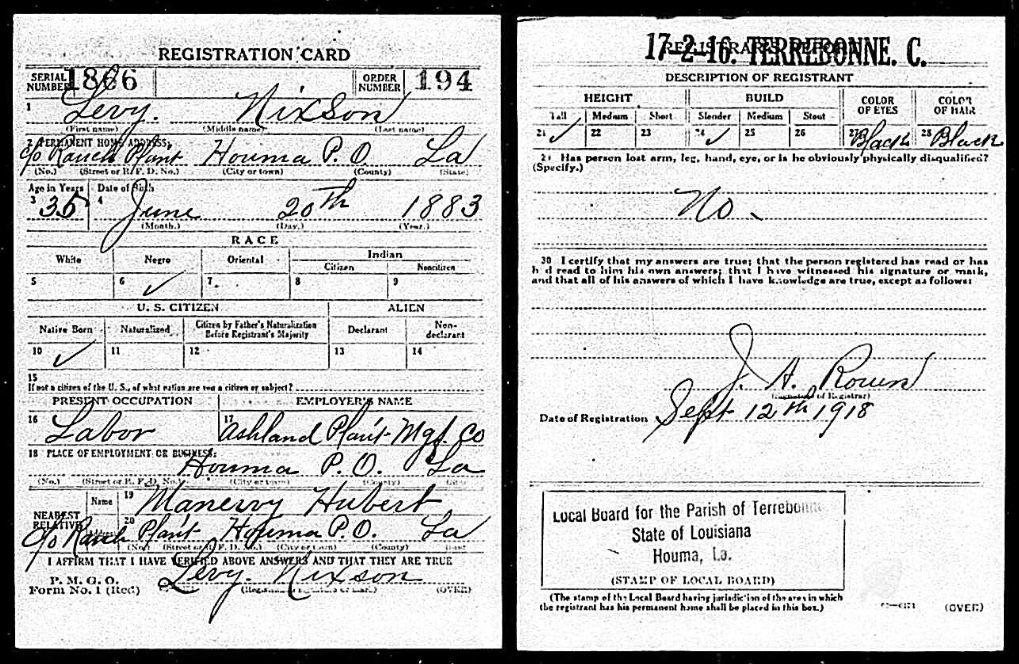 REGISTRATION CARD
SERIAL NUMBER 1866 ORDER NUMBER 194
1 Levy. Nixson
(First name) (Middle name) (Last name)
2 PERMANENT HOME ADDRESS:
c/o Ranch Plant Houma P. O. La
(No.) (Street or R. F. D. No.) (City or town) (County) (State)
Age in Years Date of Birth
3 35 4 June 20th 1883
(Month.) (Day.) (Year.)
RACE
White Negro Oriental Indian
Citizen Noncitizen
5 6 ✓ 7 8 9
U. S. CITIZEN ALIEN
Native Born Naturalized Citizen by Father's Naturalization Before Registrant's Majority Declarant Non-declarant
10 ✓ 11 12 13 14
15
If not a citizen of the U. S., of what nation are you a citizen or subject?
PRESENT OCCUPATION EMPLOYER'S NAME
16 Labor 17 Ashland Plant Mgf. Co
18 PLACE OF EMPLOYMENT OR BUSINESS:
Houma P. O. La
(No.) (Street or R. F. D. No.) (City or town) (County)
NEAREST RELATIVE Name 19 Manervy Hubert
20 c/o Ranch Plant Houma P. O. La
(No.) (Street or R. F. D. No.) (City or town) (County) (State)
I AFFIRM THAT I HAVE VERIFIED ABOVE ANSWERS AND THAT THEY ARE TRUE
P. M. G. O.
Form No. 1 (Red) Levy. Nixson (OVER)
17-2-16. TERREBONNE. C.
REGISTRAR'S REPORT
DESCRIPTION OF REGISTRANT
HEIGHT BUILD COLOR OF EYES COLOR OF HAIR
Tall Medium Short Slender Medium Stout
21 ✓ 22 23 24 ✓ 25 26 27 Black 28 Black
29 Has person lost arm, leg, hand, eye, or is he obviously physically disqualified?
(Specify.)
No -
30 I certify that my answers are true; that the person registered has read or has
had read to him his own answers; that I have witnessed his signature or mark,
and that all of his answers of which I have knowledge are true, except as follows:
(Signature of Registrar)
Date of Registration Sept 12th 1918
Local Board for the Parish of Terrebonne
State of Louisiana
Houma, La.
(STAMP OF LOCAL BOARD)
(The stamp of the Local Board having jurisdiction of the area in which
the registrant has his permanent home shall be placed in this box.)
(OVER)